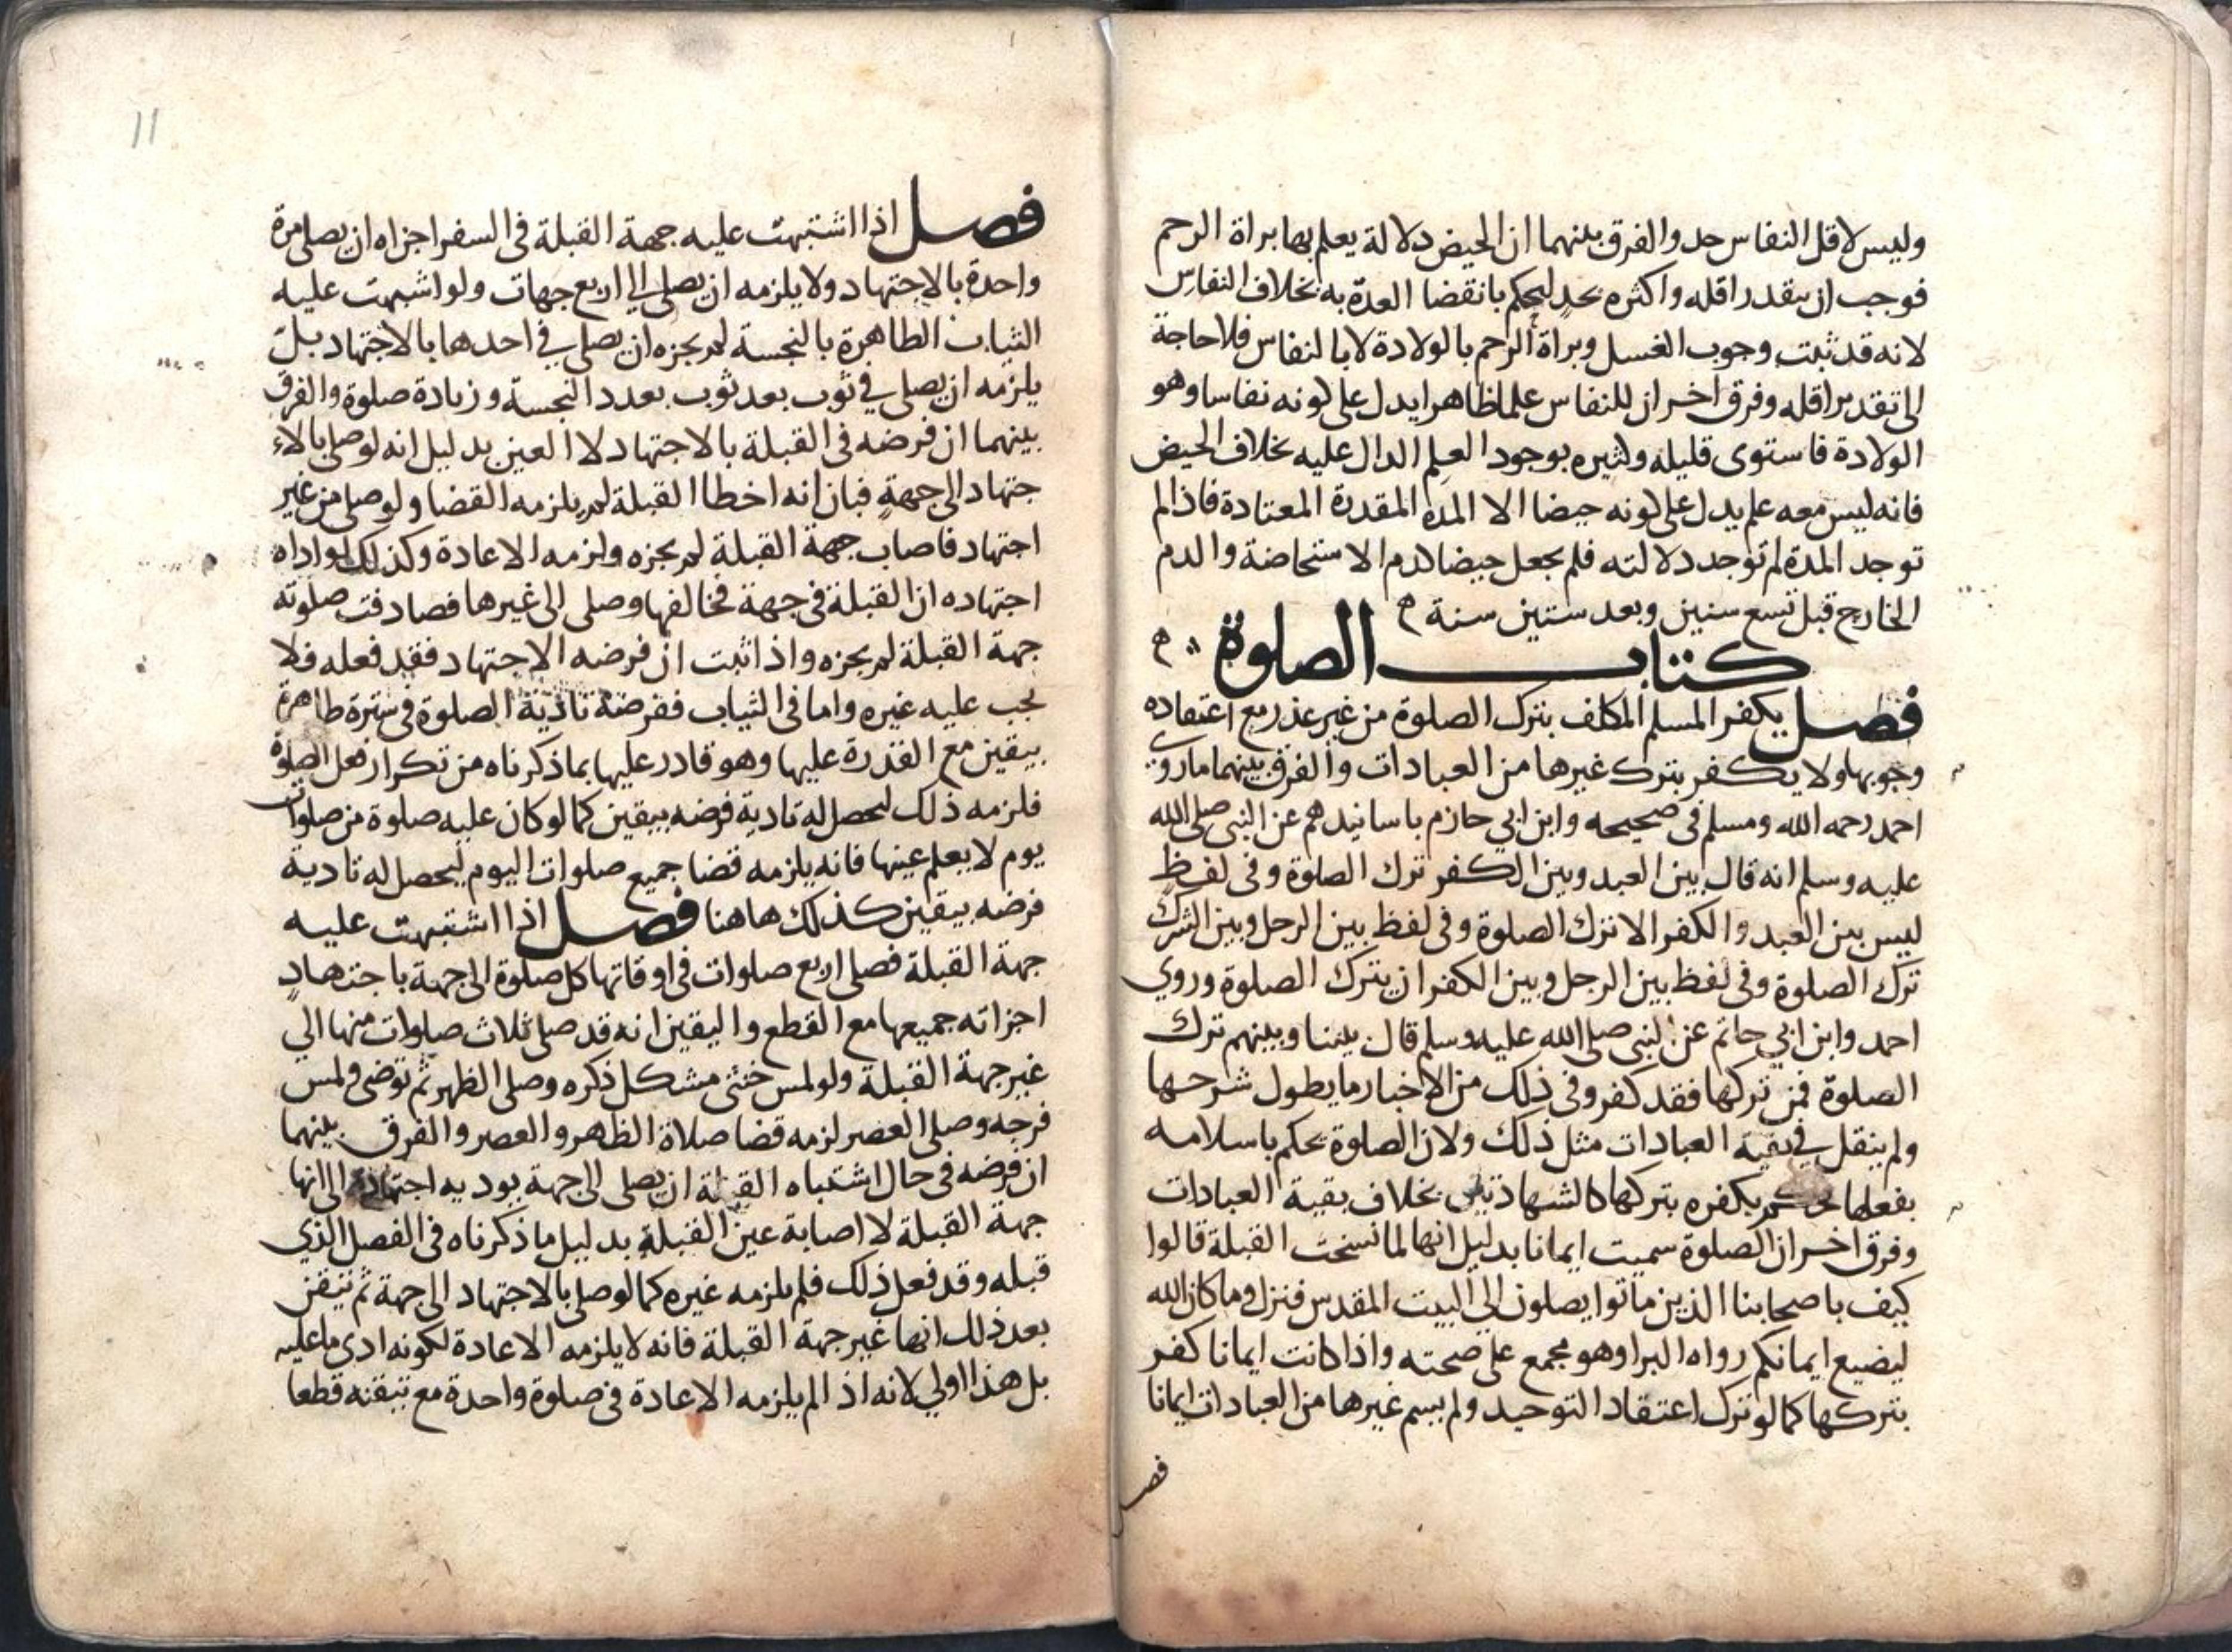 وليس لاقل النفاس حد والفرق بينهما ان الحيض دلالة يعلم بها براة الرحم
فوجب ان يتقدر اقله واكثره بحد ليحكم بانقضا العدة به بخلاف النفاس
لانه قد ثبت وجوب الغسل وبراة الرحم بالولادة لا بالنفاس فلا حاجة
الى تقدير اقله وفرق اخر ان للنفاس علما ظاهرا يدل على كونه نفاسا وهو
الولادة فاستوى قليله وكثيره بوجود العلم الدال عليه بخلاف الحيض
فانه ليس معه علم يدل على كونه حيضا الا المدة المقدرة المعتادة فاذا لم
توجد المدة لم توجد دلالته فلم يجعل حيضا كدم الاستحاضة والدم
الخارج قبل تسع سنين وبعد ستين سنة ه
كتاب الصلوة ه
فصل يكفر المسلم المكلف بترك الصلوة من غير عذر مع اعتقاده
وجوبها ولا يكفر بترك غيرها من العبادات والفرق بينهما ما روى
احمد رحمه الله ومسلم في صحيحه وابن ابي حازم باسانيدهم عن النبي صلى الله
عليه وسلم انه قال بين العبد وبين الكفر ترك الصلوة وفي لفظ
ليس بين العبد والكفر الا ترك الصلوة وفي لفظ بين الرجل وبين الشرك
ترك الصلوة وفي لفظ بين الرجل وبين الكفر ان يترك الصلوة وروي
احمد وابن ابي حاتم عن النبي صلى الله عليه وسلم قال بيننا وبينهم ترك
الصلوة فمن تركها فقد كفر وفي ذلك من الاخبار ما يطول شرحها
ولم ينقل في بقية العبادات مثل ذلك ولان الصلوة يحكم باسلامه
بفعلها فحكم بكفره بتركها كالشهادتين بخلاف بقية العبادات
وفرق اخر ان الصلوة سميت ايمانا بدليل انها لما نسخت القبلة قالوا
كيف باصحابنا الذين ماتوا يصلون الى البيت المقدس فنزل وما كان الله
ليضيع ايمانكم رواه البرا وهو مجمع على صحته واذا كانت ايمانا كفر
بتركها كما لو ترك اعتقاد التوحيد ولم يسم غيرها من العبادات ايمانا
فصل
11
فصل اذا اشتبهت عليه جهة القبلة في السفر اجزاه ان يصلى مرة
واحدة بالاجتهاد ولا يلزمه ان يصلي الى اربع جهات ولو اشتبهت عليه
الثياب الطاهرة بالنجسة لم يجزه ان يصلي في احدها بالاجتهاد بل
يلزمه ان يصلي في ثوب بعد ثوب بعدد النجسة وزيادة صلوة والفرق
بينهما ان فرضه في القبلة بالاجتهاد لا العين بدليل انه لو صلى بالا
جتهاد الى جهة فبان انه اخطا القبلة لم يلزمه القضا ولو صلى من غير
اجتهاد فاصاب جهة القبلة لم يجزه ولزمه الاعادة وكذلك لو اداه
اجتهاده ان القبلة في جهة فخالفها وصلى الى غيرها فصادفت صلوته
جهة القبلة لم يجزه واذا ثبت ان فرضه الاجتهاد فقد فعله فلا
يجب عليه غيره واما في الثياب ففرضه تادية الصلوة في سترة طاهرة
بيقين مع القدرة عليها وهو قادر عليها بما ذكرناه من تكرار فعل الصلوة
فلزمه ذلك ليحصل له تادية فرضه بيقين كما لو كان عليه صلوة من صلوات
يوم لا يعلم عينها فانه يلزمه قضا جميع صلوات اليوم ليحصل له تادية
فرضه بيقين كذلك هاهنا فصل اذا اشتبهت عليه
جهة القبلة فصلى اربع صلوات في اوقاتها كل صلوة الى جهة باجتهاد
اجزاته جميعها مع القطع واليقين انه قد صلى ثلاث صلوات منها الي
غير جهة القبلة ولو لمس خنثى مشكل ذكره وصلى الظهر ثم توضى ولمس
فرجه وصلى العصر لزمه قضا صلاة الظهر والعصر والفرق بينهما
ان فرضه في حال اشتباه القبلة ان يصلى الى جهة يوديه اجتهاده الى انها
جهة القبلة لا اصابة عين القبلة بدليل ما ذكرناه في الفصل الذي
قبله وقد فعل ذلك فلم يلزمه غيره كما لو صلى بالاجتهاد الى جهة ثم تيقن
بعد ذلك انها غير جهة القبلة فانه لا يلزمه الاعادة لكونه ادى ما عليه
بل هذا اولي لانه اذا لم يلزمه الاعادة في صلوة واحدة مع تيقنه قطعا